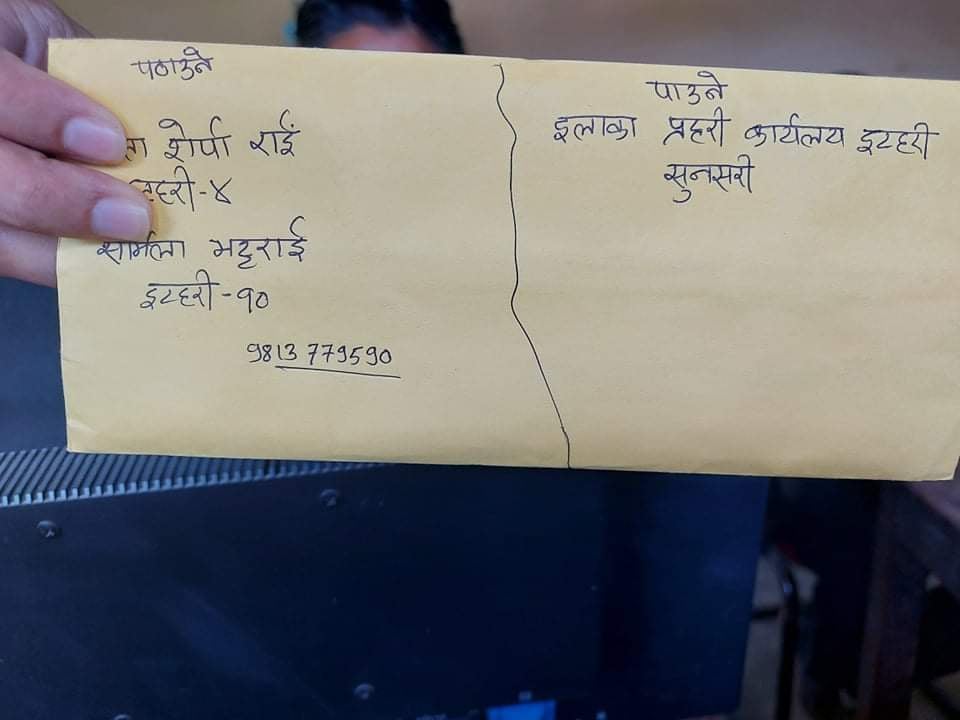 पठाउने
ता शेर्पा राई
टहरी-४
सर्मिला भट्टराई
इटहरी-१०
9813779590
पाउने
इलाका प्रहरी कार्यलय इटहरी
सुनसरी